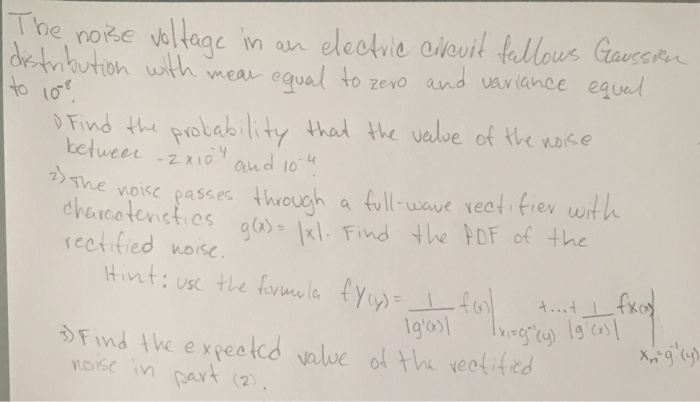 The noise voltage in an electric circuit fallows Gaussien
distribution with mean equal to zero and variance equal
to 10⁻⁸.
1) Find the probability that the value of the noise
between -2x10⁻⁴ and 10⁻⁴.
2) The noise passes through a full-wave rectifier with
characteristics g(x) = |x|. Find the PDF of the
rectified noise.
Hint: use the formula fY(y) = 1/|g'(x)| f(x)|x₁=g⁻¹(y) +...+ 1/|g'(x)| fx(x)|xₙ=g⁻¹(y)
3) Find the expected value of the rectified
noise in part (2).